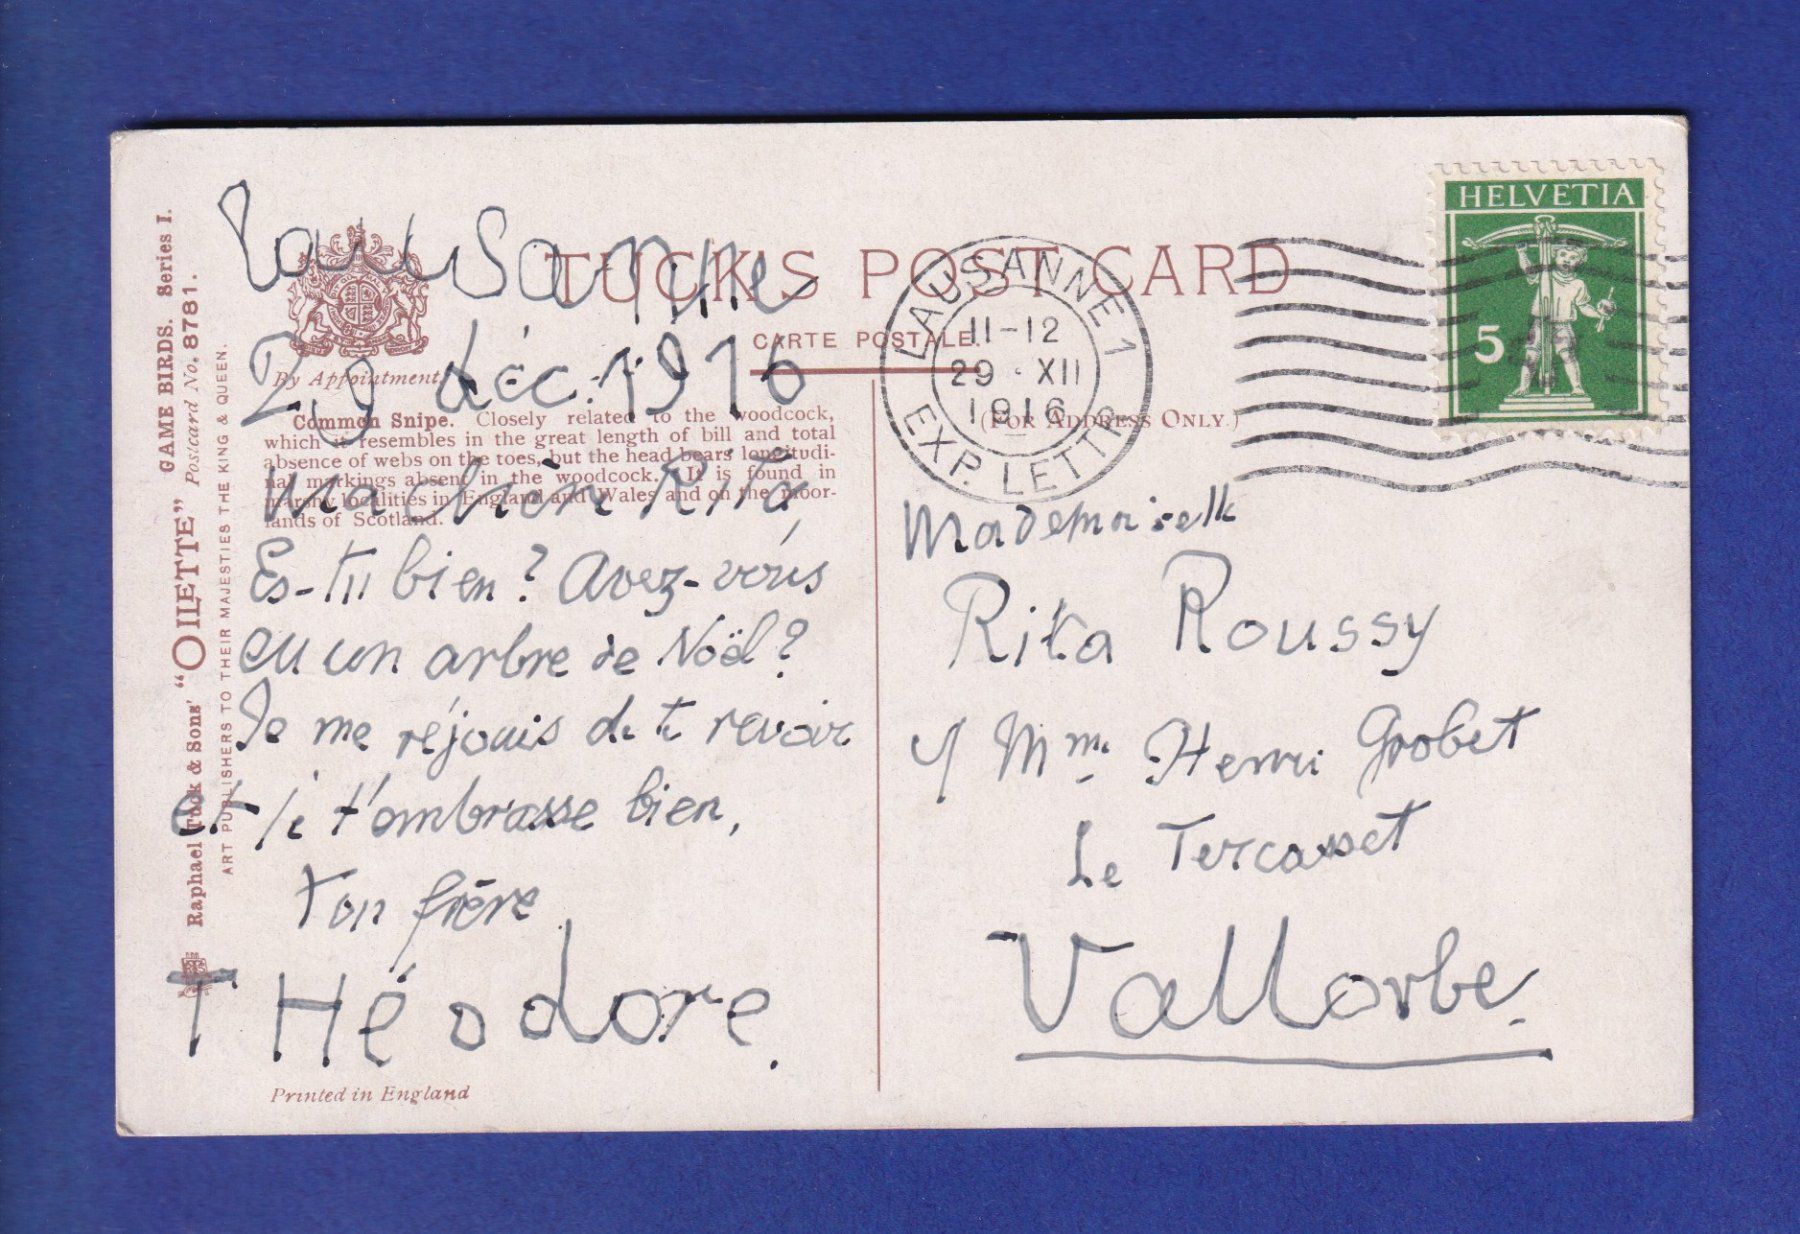 GAME BIRDS. Series I.
Postcard No. 8781.
Raphael Tuck & Sons' "OILETTE"
ART PUBLISHERS TO THEIR MAJESTIES THE KING & QUEEN.
TUCK'S POST CARD
CARTE POSTALE.
(FOR ADDRESS ONLY.)
By Appointment
Common Snipe. Closely related to the woodcock,
which it resembles in the great length of bill and total
absence of webs on the toes, but the head bears longitudi-
nal markings absent in the woodcock. It is found in
marshy localities in England and Wales and on the moor-
lands of Scotland.
Lausanne
29 déc. 1916
Ma chère Rita
Es-tu bien? Avez-vous
eu un arbre de Noël?
Je me réjouis de te revoir
et je t'embrasse bien,
Ton frère
THéodore.
Printed in England
LAUSANNE 1
11-12
29·XII
1916
EXP. LETTR.
HELVETIA
5
Mademoiselle
Rita Roussy
c/ Mme Henri Grobet
Le Tercasset
Vallorbe.